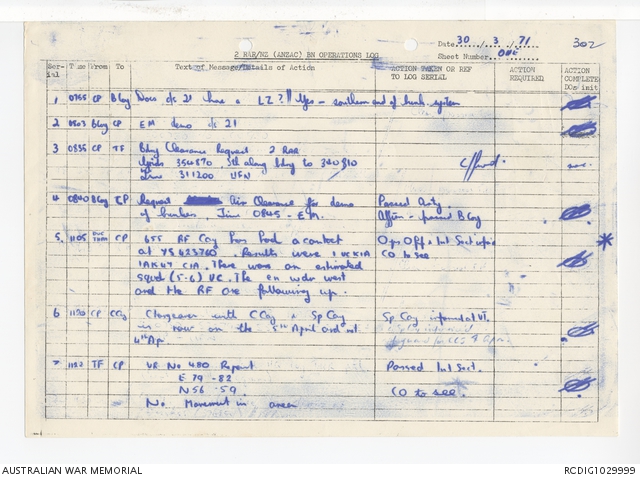 Date 30 / 3 / 71
302
2 RAR/NZ (ANZAC) BN OPERATIONS LOG
Sheet Number ONE
Serial Time From To Text of Message/Details of Action ACTION TAKEN OR REF TO LOG SERIAL ACTION REQUIRED ACTION COMPLETE DOs init
1 0755 CP BCoy Does c/s 21 have a LZ?!! Yes - southern end of bunk. system
2 0803 BCoy CP EM demo c/s 21
3 0835 CP TF Bdry Clearance Request 2 RAR
Grids 354870, Sth along bdry to 340810
Time 311200 UFN
4 0840 BCoy CP Request Air Clearance for demo Passed Arty.
of bunkers, Time 0845 - E.M. Affirm - passed B Coy
5. 1105 CP 655 RF Coy has had a contact Ops Off & Int Sect info
at YS 423760. Results were 1 VC KIA CO to see
1 AK47 CIA. There was an estimated
squd (5-6) VC. The en wdr west
and the RF are following up.
6 CP CCoy with C Coy & Sp Coy Sp Coy informed
is now on the 5th April and not
4th Ap
7 TF CP VR No 480 Report Passed Int Sect.
E 79 - 82
N 56 - 59 CO to see.
No Movement in area
AUSTRALIAN WAR MEMORIAL
RCDIG1029999